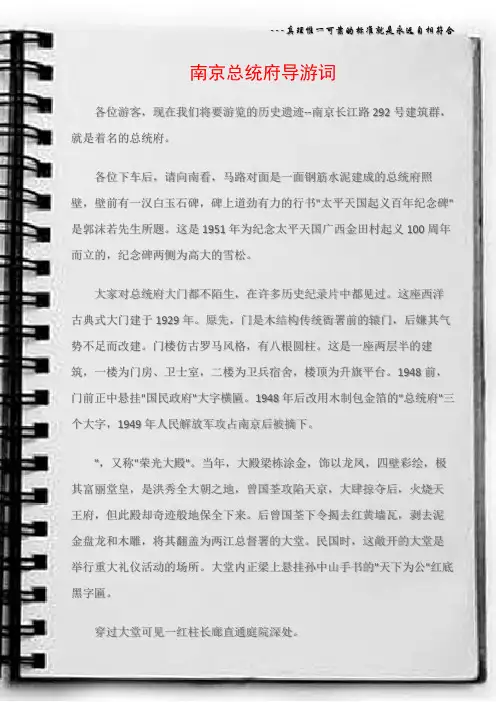 ---真理惟一可靠的标准就是永远自相符合
南京总统府导游词
各位游客，现在我们将要游览的历史遗迹--南京长江路 292 号建筑群，
就是着名的总统府。
各位下车后，请向南看，马路对面是一面钢筋水泥建成的总统府照
壁，壁前有一汉白玉石碑，碑上遒劲有力的行书"太平天国起义百年纪念碑"
是郭沫若先生所题。这是 1951 年为纪念太平天国广西金田村起义 100 周年
而立的，纪念碑两侧为高大的雪松。
大家对总统府大门都不陌生，在许多历史纪录片中都见过。这座西洋
古典式大门建于 1929 年。原先，门是木结构传统衙署前的辕门，后嫌其气
势不足而改建。门楼仿古罗马风格，有八根圆柱。这是一座两层半的建
筑，一楼为门房、卫士室，二楼为卫兵宿舍，楼顶为升旗平台。1948 前，
门前正中悬挂"国民政府"大字横匾。1948 年后改用木制包金箔的"总统府"三
个大字，1949 年人民解放军攻占南京后被摘下。
"，又称"荣光大殿"。当年，大殿梁栋涂金，饰以龙凤，四壁彩绘，极
其富丽堂皇，是洪秀全大朝之地，曾国荃攻陷天京，大肆掠夺后，火烧天
王府，但此殿却奇迹般地保全下来。后曾国荃下令揭去红黄墙瓦，剥去泥
金盘龙和木雕，将其翻盖为两江总督署的大堂。民国时，这敞开的大堂是
举行重大礼仪活动的场所。大堂内正梁上悬挂孙中山手书的"天下为公"红底
黑字匾。
穿过大堂可见一红柱长廊直通庭院深处。